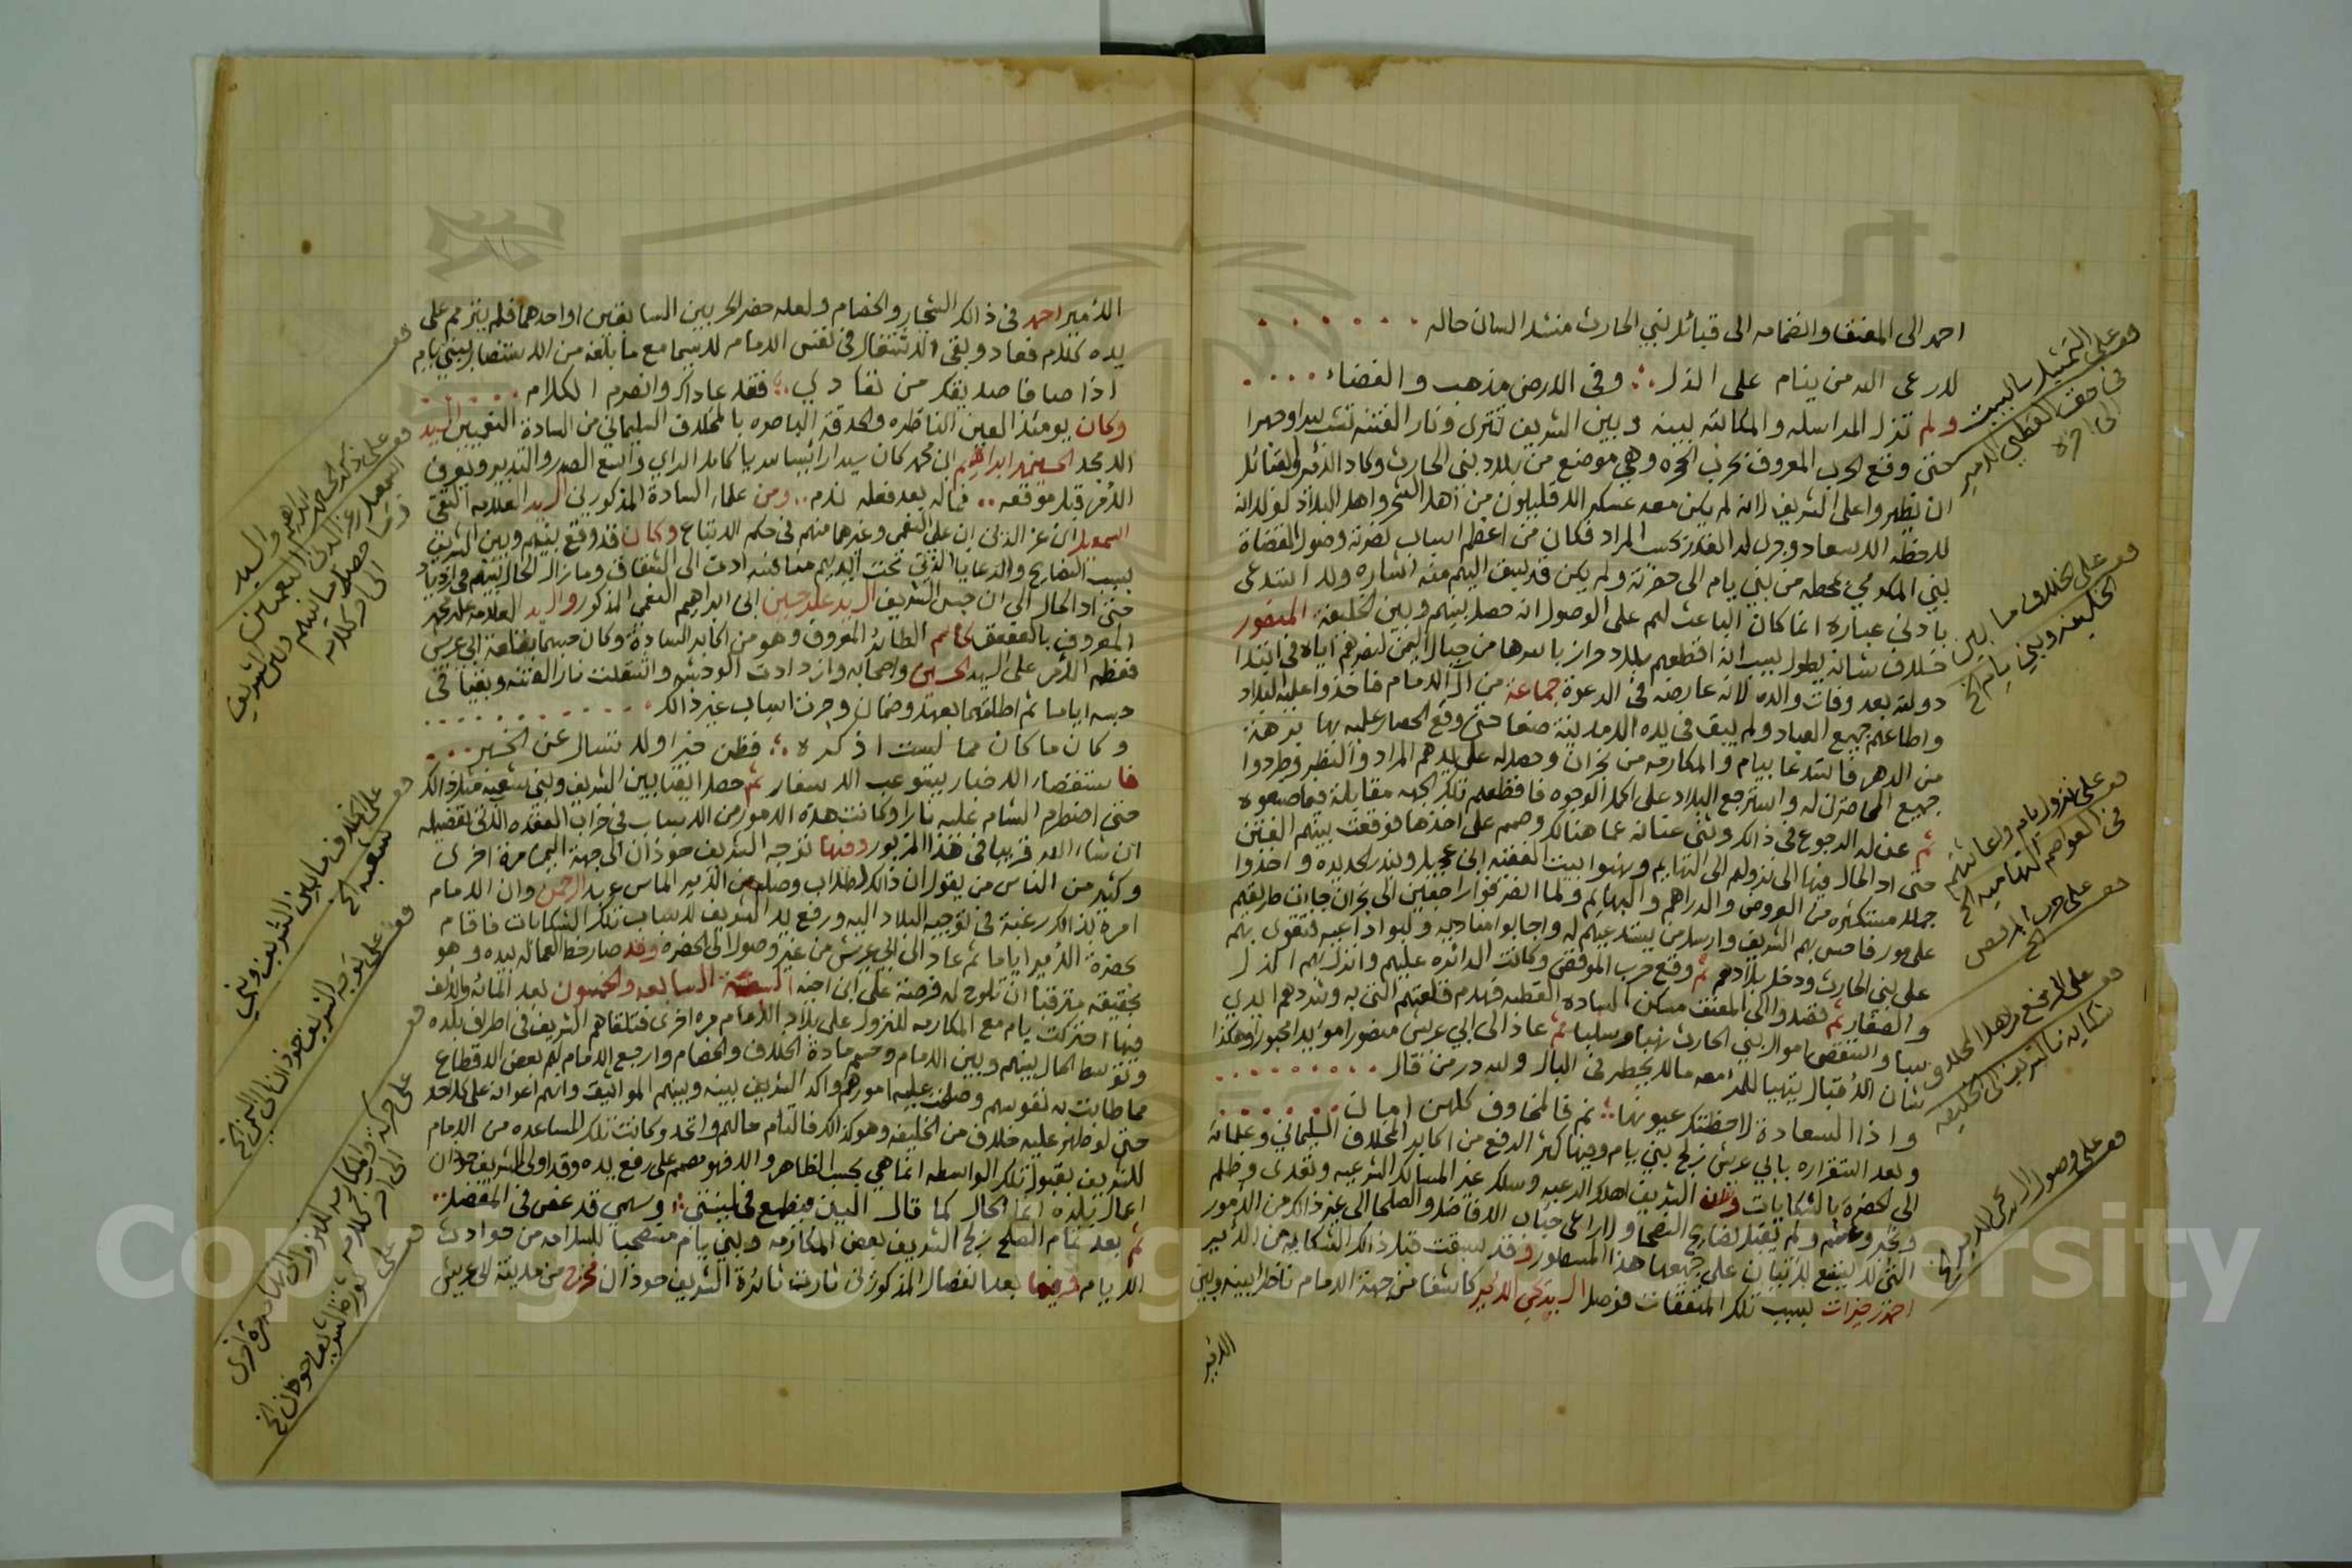 احمد الى المعنق وانضمامه الى قبائل بني الحارث منشدا لسان حاله
لا رعى الله من ينام على الذل وفي الارض مذهب والفضاء
ولم تزل المراسله والمكاتبه بينه وبين الشريف تترى ونار الفتنه تشب سرا وجهرا
حتى وقع الحرب المعروف بحرب الحجره وهي موضع من بلاد بني الحارث وكاد الامير والقبائل
ان يظهروا على الشريف لانه لم يكن معه عسكر الا قليلون من اهل الشجر واهل البلاد لولا انه
لاحظه الاسعاد وجرى له القدر بحسب المراد فكان من اعظم اسباب نصرته وصول القضاة
بني المكرمي بمحطه من بني يام الى حضرته ولم يكن قد سبق اليهم منه اشاره ولا استدعى
بادنى عباره انما كان الباعث لهم على الوصول انه حصل بينهم وبين الخليفة المنصور
خلاف شانه يطول بسبب انه اقطعهم بلاد حراز باسرها من جبال اليمن لنصرهم اياه في ابتدا
دولته بعد وفات والده لانه عارضه في الدعوة جماعة من آل الامام فاخذوا عليه البلاد
واطاعهم جميع العباد ولم يبق في يده الا مدينة صنعا حتى وقع الحصار عليه بها برهة
من الدهر فاستدعا بيام والمكارمه من نجران وحصل له على يدهم المراد والنظير وطردوا
جميع المحاصرين له واسترجع البلاد على اكمل الوجوه فاقطعهم تلك الجهه مقابلة فيما صنعوه
ثم عن له الرجوع في ذالك وثنى عنانه عما هنالك وصمم على اخذها فوقعت بينهم الفتن
حتى اد الحال فيها الى نزولهم الى التهايم ونهبوا بيت الفقيه ابن عجيل وبندر الحديده واخذوا
جمله مستكثره من العروض والدراهم والبهايم ولما انصرفوا راجعين الى نجران جاءت طريقهم
على مور فاحس بهم الشريف وارسل من يستدعيهم له واجابوا مناديه ولبوا داعيه فتقوى بهم
على بني الحارث ودخل بلادهم ثم وقع حرب الموقص وكانت الدائره عليهم وانزل بهم الذل
والصغار ثم قصدوا الى المعنق مسكن السادة القطبه فهدم قلعتهم التي به وشردهم ايدي
سبا واستنقص اموال بني الحارث نهبا وسلبا ثم عاد الى ابي عريش منصورا مؤيدا مجبورا وهكذا
شان الاقبال يتهيا للمرء معه ما لا يخطر في البال ولله در من قال
واذا السعادة لاحظتك عيونها نم فالمخاوف كلهن امان
وبعد استقراره بابي عريش زلج بني يام وحينها كثر الرفع من اكابر المخلاف السليماني وعلمائه
الى الحضرة بالشكايات وان الشريف اهلك الرعيه وسلك غير المسالك الشرعيه وتعدى وظلم
وتجبر وغشم ولم يقبل نصايح النصحا ولا راعى جناب الافاضل والصلحا الى غير ذالك من الامور
التي لا يتسع للاتيان على جميعها هذا المسطور وقد سبقت قبل ذالك الشكايه من الامير
احمد خيرات بسبب تلك المتفقات فوصل السيد يحيى الامير كاشفا من جهة الامام ناظرا بينه وبين
الامير
قف على التمثيل بالبيت
في حق القطبي الامير
الى اخره
قف على الخلاف ما بين
الخليفه وبني يام الخ
قف على نزول يام واعانتهم
في العواصم التهاميه الخ
قف على حرب الموقص
الخ
قف على الرفع من اهل المخلاف
شكايه بالشريف الى الخليفه
قف على وصول السيد يحيى الامير
الامير احمد في ذالك الشجار والخصام ولعله حضر الحربين السابقين او احدهما فلم ينبرم على
يده كلام فعاد وبقى الاشتغال في نفس الامام لاسيما مع ما بلغه من الاستنصار ببني يام
اذا صافا صديقك من تعادي فقد عاداك وانصرم الكلام
وكان يومئذ العين الناظره والحدقة الباصره بالمخلاف السليماني من السادة النعميين السيد
الامجد الحسين بن ابراهيم ابن محمد كان سيدا رئيسا سريا كامل الراي واسع الصدر والتدبير ويعرف
الامر قبل موقعه فما له بعد فعله ندم ومن علماء السادة المذكورين السيد العلامه التقي
اسمعيل ابن عز الدين ابن علي النعمي وغيرهما منهم في حكم الاتباع وكان قد وقع بينهم وبين الشريف
بسبب النصايح والرعايا الذي تحت ايديهم مناكبه ادت الى الشقاق وما زال الحال بينهم في ازدياد
حتى اد الحال الى ان حبس الشريف السيد علي حسين ابن ابراهيم النعمي المذكور والسيد العلامه علي محمد
المعروف بالعقيق خاتم الطائر المعروف وهو من اكابر السادة وكان حبسهما بقلعة ابي عريش
فعظم الامر على السيد الحسين واصحابه وازدادت الوحشه واشتعلت نار الفتنه وبقيا في
حبسه اياما ثم اطلقهما بعهد وضمان وجرت اسباب غير ذالك
وكان ما كان مما لست اذكره فظن خيرا ولا تسال عن الخبر
فاستقصاء الاخبار يستوعب الاسفار ثم حصل ايضا بين الشريف وبني شعبه مثل ذالك
حتى اضطرم الشام عليه نارا وكانت هذه الامور من الاسباب في خراب العقده الاتي تفصيله
ان شاء الله قريبا في هذا المزبور وفيها توجه الشريف حوذان الى جهة اليمن مرة اخرى
وكثير من الناس من يقول ان ذالك لطلاب وصله من الامير الماس عبد الرحمن وان الامام
امره بذالك رغبة في توجيه البلاد اليه ورفع يد الشريف لاسباب تلك الشكايات فاقام
بحضرة الامير اياما ثم عاد الى ابي عريش من غير وصول الى الحضرة وقد صار خط العماله بيده وهو
بحقيقه مترقبا ان تلوح له فرصة على ابن اخيه السنة السابعه والخمسون بعد المائه والالف
فيها احتركت يام مع المكارمه للنزول على بلاد الامام مره اخرى فتلقاهم الشريف في اطراف بلده
وتوسط الحال بينهم وبين الامام وحسم مادة الخلاف والخصام وارجع الامام لهم بعض الاقطاع
مما طابت به نفوسهم وصلحت عليه امورهم واكد الشريف بينه وبينهم المواثيق وانهم اعوانه على كل احد
حتى لو ظهر عليه خلاف من الخليفه وهو كذالك فالتام حالهم واتحد وكانت تلك المساعده من الامام
للشريف بقبول تلك الواسطه انما هي بحسب الظاهر والا فهو مصمم على رفع يده وقد اولى الشريف حوذان
اعمال بلده انما الحال كما قال
ثم بعد تمام الصلح زلج الشريف بعض المكارمه وبني يام مستصحبا للسلامه من حوادث
الايام وفيها بعد انفصال المذكورين ثارت ثائرة الشريف حوذان فخرج من مدينة ابي عريش
قف
قف على ذكر الحسين
ابن ابراهيم والسيد
اسمعيل بن عز الدين النعميين
وما حصل ما بينهم وبين الشريف
الى اخر كلامه
قف على الخلاف ما بين الشريف وبني
شعبه الخ
قف على توجه الشريف حوذان الى اليمن الخ
قف على حركة المكارمه للنزول الى بلاد الامام مرة اخرى
الى اخر كلامه
قف على ثورة الشريف حوذان الخ
Copyright © King Saud University